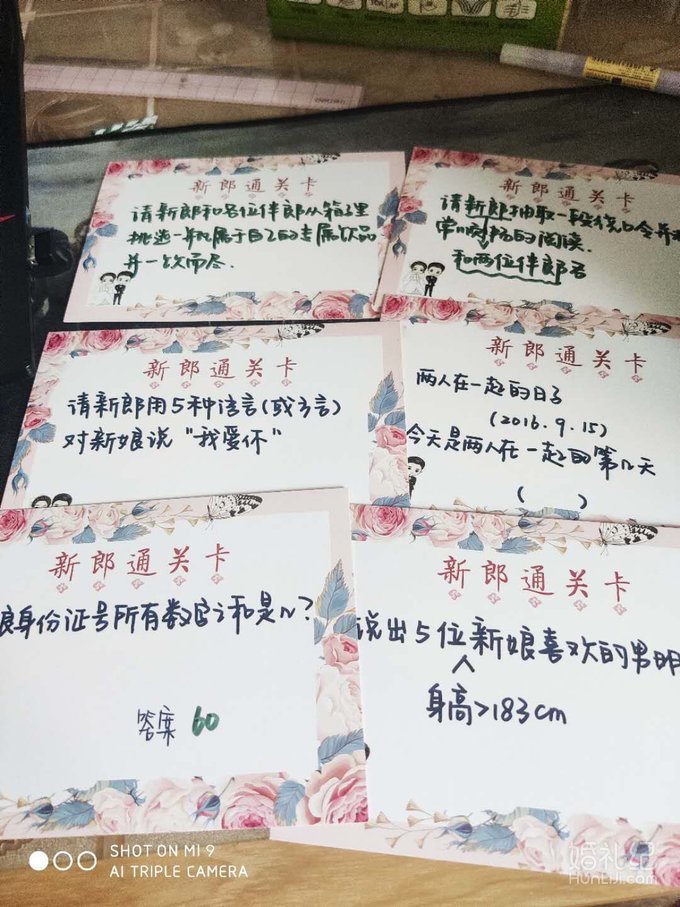 新郎通关卡
请新郎和各位伴郎从箱子里
挑选一并属于自己的专属饮品
并一饮而尽.
新郎通关卡
请新郎抽取一段绕口令并
的阅读
和两位伴郎
新郎通关卡
请新郎用5种语言(或方言)
对新娘说“我爱你”
新郎通关卡
两人在一起的日子
(2016.9.15)
今天是两人在一起的第几天
( )
新郎通关卡
身份证号所有数字之和是几?
答案 60
新郎通关卡
说出5位新娘喜欢的男明
人
身高>183cm
SHOT ON MI 9
AI TRIPLE CAMERA
婚礼纪
HUNLIJI.COM